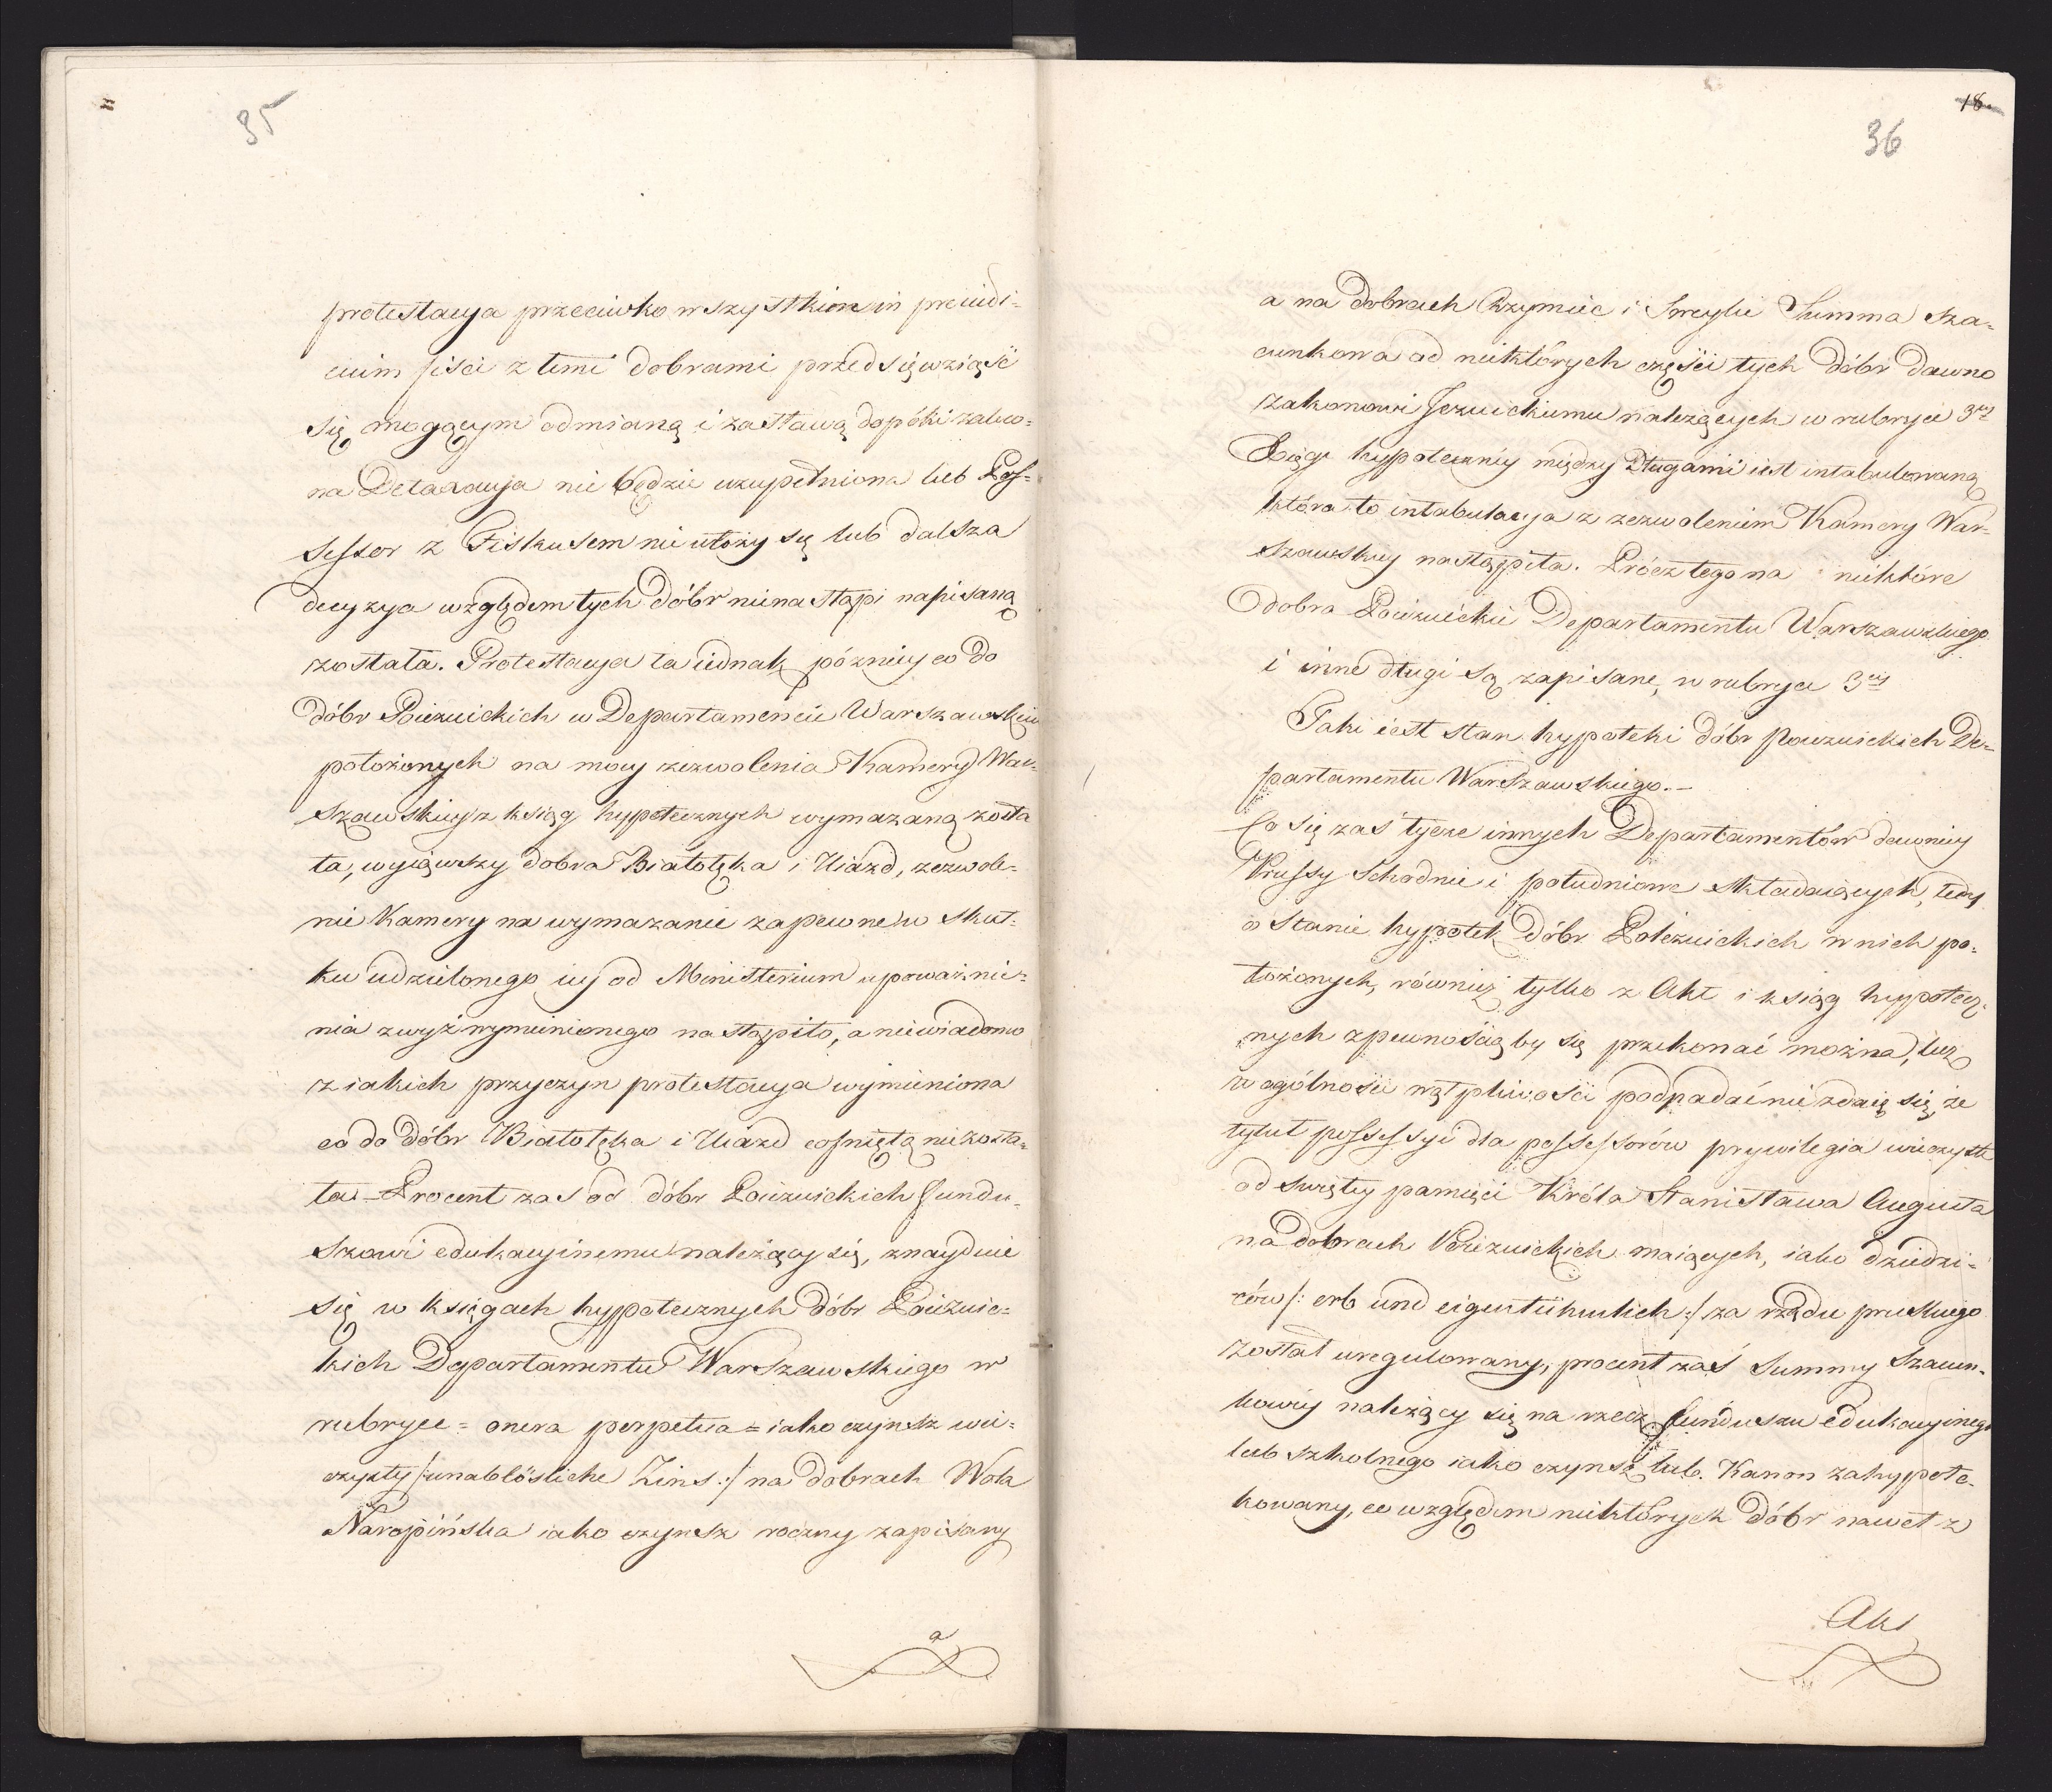 35
protestacya przeciwko wszystkim in preiudi-
cium fisci z temi dobrami przedsięwziąść
się mogącym odmianą i zastawą dopóki zalco-
na Detaxacya nie będzie uzupełniona lub Pos-
sessor z Fiskusem nie ułoży się lub dalsza
decyzya względem tych dóbr nienastąpi napisaną
została. Protestacya ta iednak późniey co do
dóbr Poiezuickich w Departamencie Warszawskim
położonych na mocy zezwolenia Kamery War-
szawskiey z ksiąg hypotecznych wymazaną zosta
ła, wyiąwszy dobra Białołęka i Uiazd, zezwole-
nie Kamery na wymazanie zapewne w skut-
ku udzielonego iey od Ministerium upoważnie-
nia zwyż wymienionego nastąpiło, a niewiadomo
z iakich przyczyn protestacya wymieniona
co do dóbr Białołęka i Uiazd cofniętą nie zosta-
ła – Procent zaś od dóbr Poiezuickich fundu-
szowi edukacyinemu należący się, znayduie
się w księgach hypotecznych dóbr Poiezuic-
kich Departamentu Warszawskiego w
rubryce = onera perpetua = iako czynsz wie-
czysty /: unablösliche Zins :/ na dobrach Wola
Naropińska iako czynsz roczny zapisany
a
18.
36
a na dobrach Rzymiec i Sercylie Summa sza-
cunkowa od niektórych części tych dóbr dawno
zakonowi Jezuickiemu należących w rubryce 3ciey
Xięgi hypoteczniy między Długami iest intabulowaną
która to intabulacya z zezwoleniem Kamery War-
szawskiey nastąpiła. Prócz tego na niektóre
dobra Poiezuickie Departamentu Warszawskiego
i inne długi są zapisane, w rubryce 3ciey
Taki iest stan hypoteki dóbr Poiezuickich De-
partamentu Warszawskiego. –
Co się zaś tycze innych Departamentów dawniey
Prussy Schodnie i południowe składaiących, tedy
o stanie hypotek dóbr Poiezuickich w nich po-
łożonych, równiez tylko z Akt i ksiąg hypotecz-
nych zpewnością by się przekonać można, lecz
w ogólności wątpliwości podpadać nie zdaię się, że
tytuł possessyi dla possessorów prywilegia wieczyste
od świętey pamięci Króla Stanisława Augusta
na dobrach Poiezuickich maiących, iako dziedzi-
ców /: erb und eigentühmlich :/ za rządu pruskiego
został uregulowany, procent zaś Summy szacun-
kowey należący się na rzecz funduszu edukacyinego
lub szkolnego iako czynsz lub Kanon zahypote-
kowany, co względem niektórych dóbr nawet z
Akt